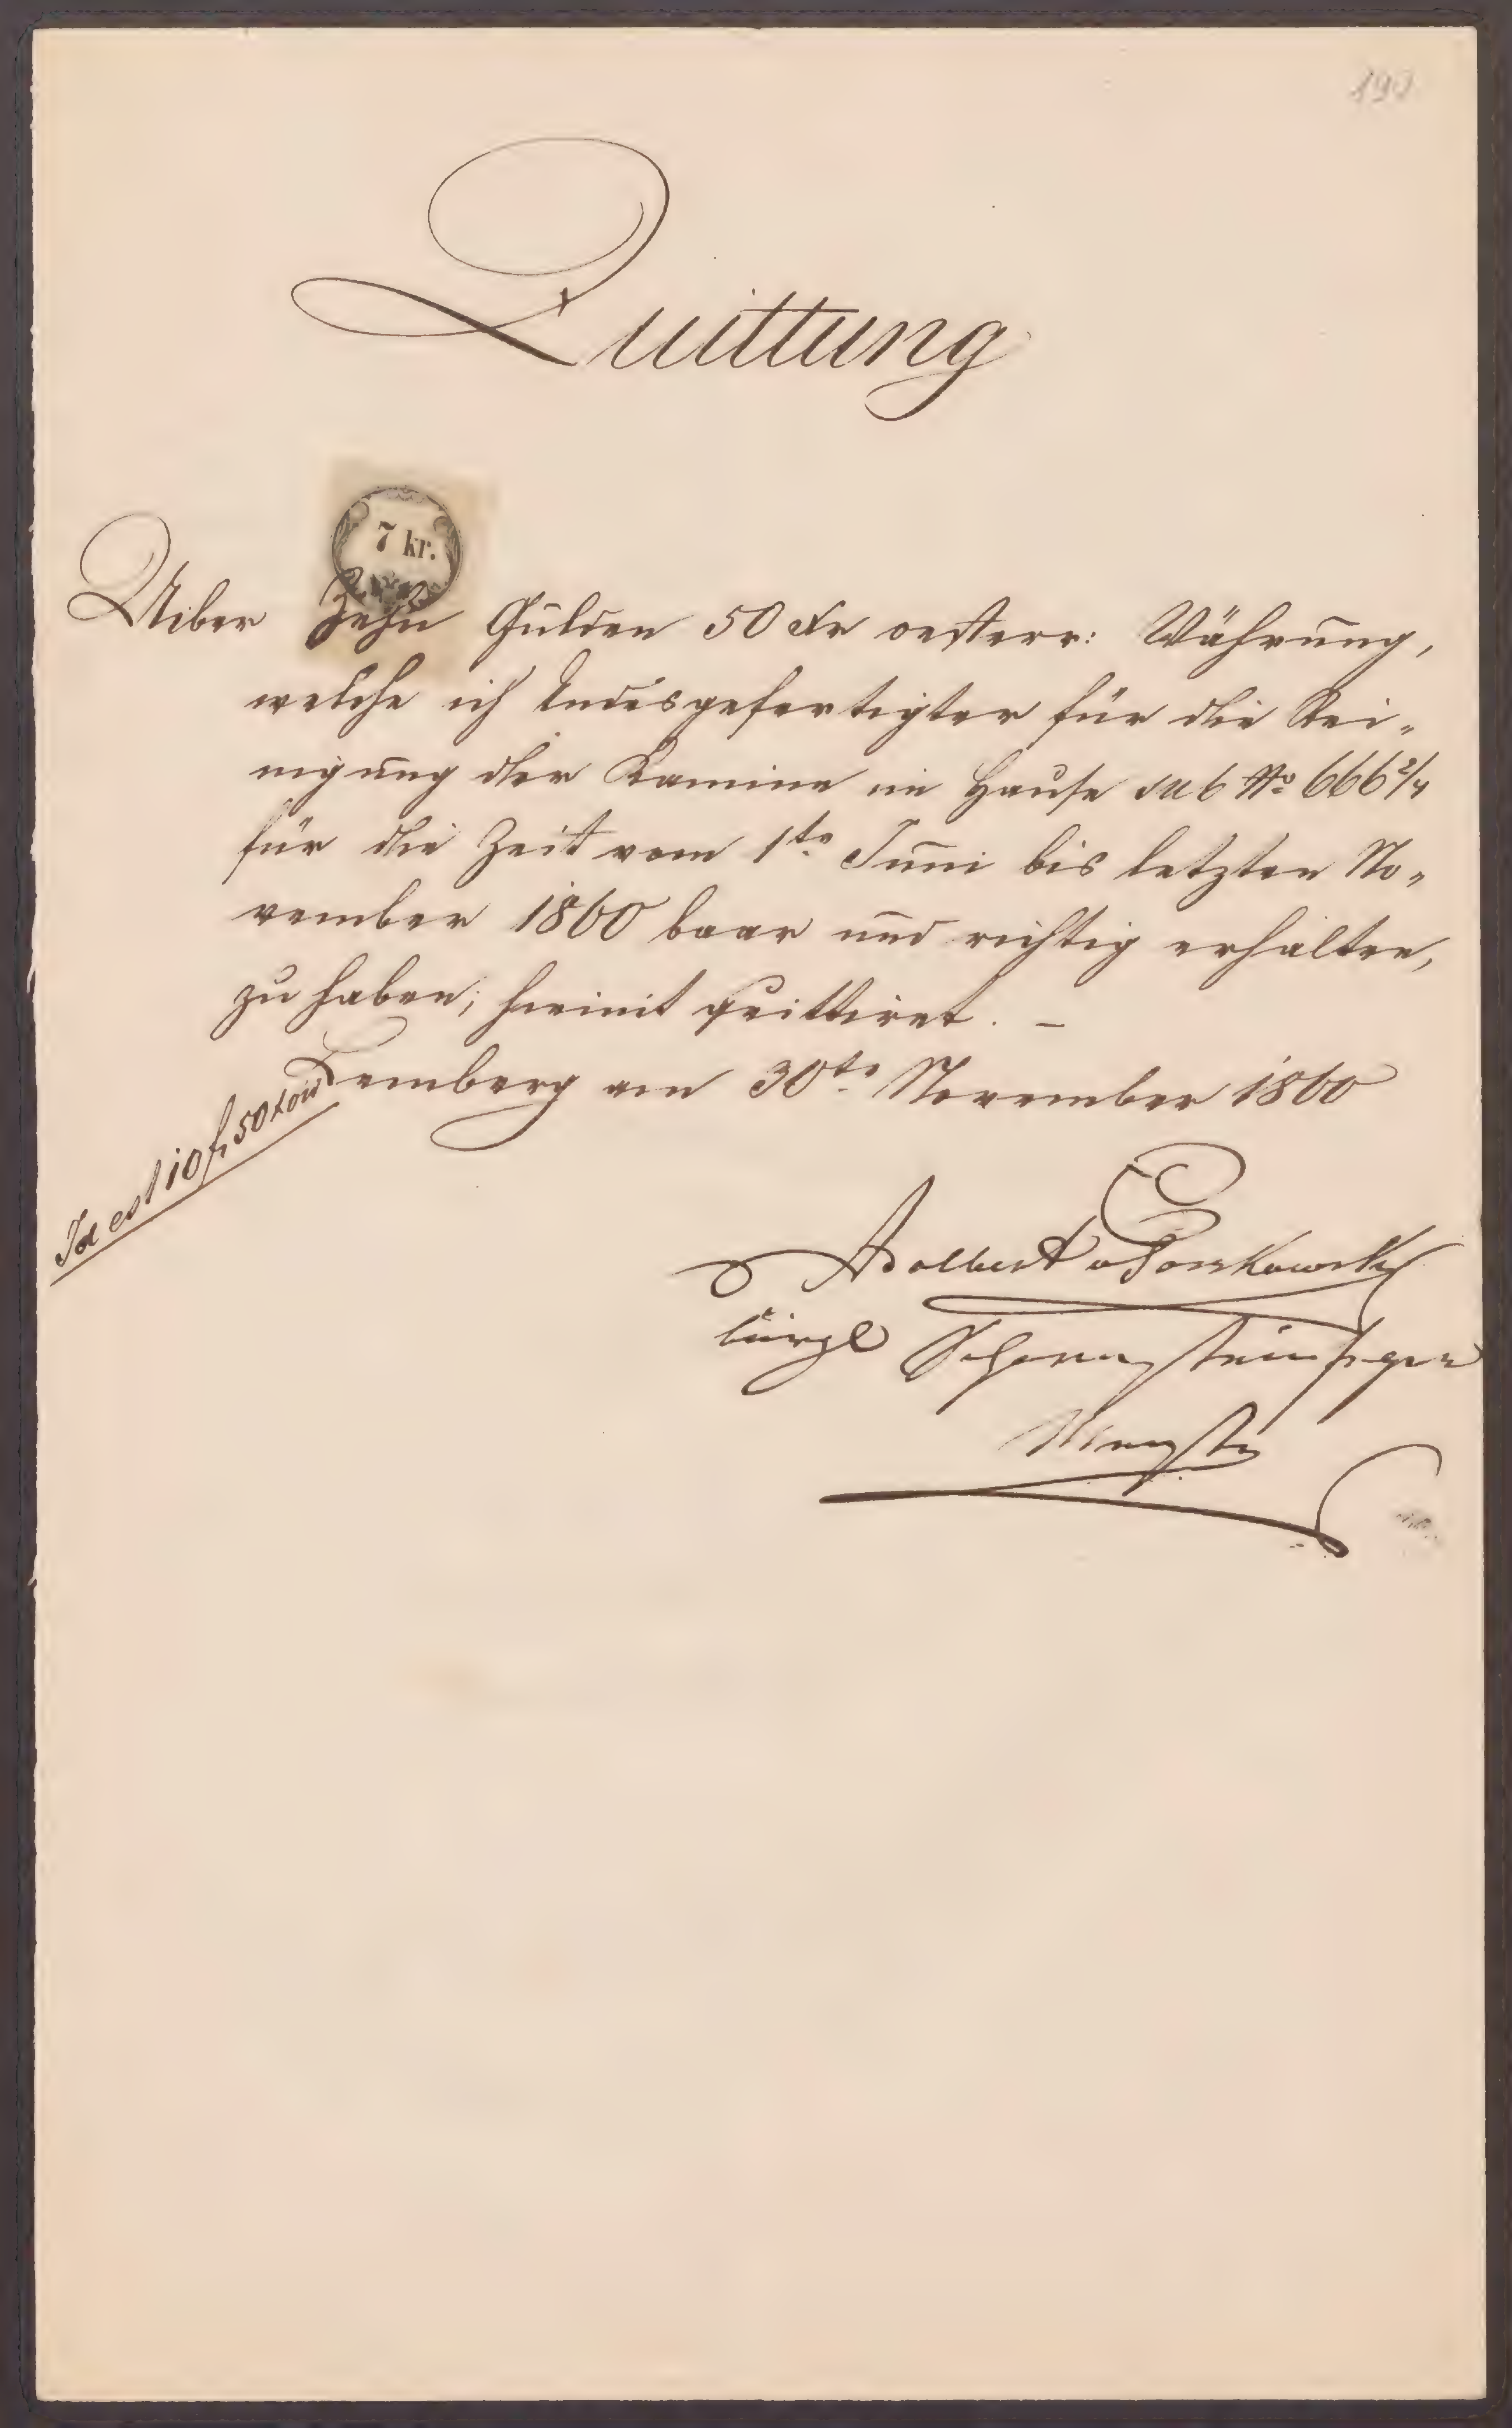 190
Quittung
7 kr.
Uiber Zehn Gulden 50 Kr oesterr: Währung,
welche ich Endesgefertigter für die Rei-
nigung der Kamine im Hause sub No 666 2/4
für die Zeit vom 1te Juni bis letzten No-
vember 1860 baar und richtig erhalten,
zu haben, hiemit quittiret. –
Lemberg am 30te November 1860
Id est 10 fl 50 x öW
Adalbert v Gorskowski
bürgl Schornsteinfeger
Meister